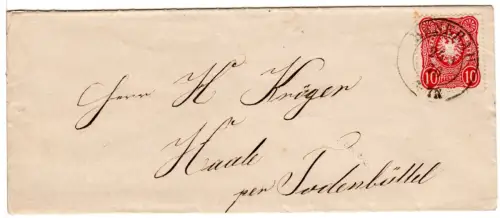 Herrn H Kröger
Haale
per Todenbüttel
10 10